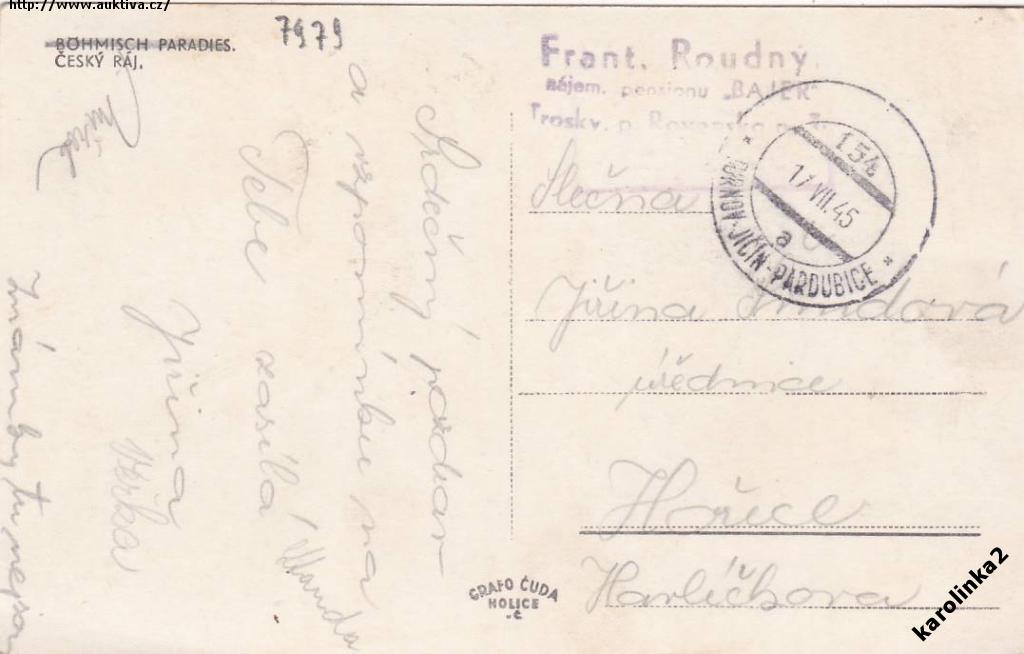 http://www.auktiva.cz/
7979
BÖHMISCH PARADIES.
ČESKÝ RÁJ.
Srdečný pozdrav
a vzpomínku na
Tebe zasílá
Jiřina
Věrka
Známky tu nejsou
Frant. Roudný,
nájem. pensionu „BAJER"
Trosky, p. Rovensko p. Tr.
154
17.VII.45
a
* TURNOV-JIČÍN-PARDUBICE *
Slečna
Jiřina
úřednice
Hořice
Havlíčkova
GRAFO ČUDA
HOLICE
-č
karolinka2